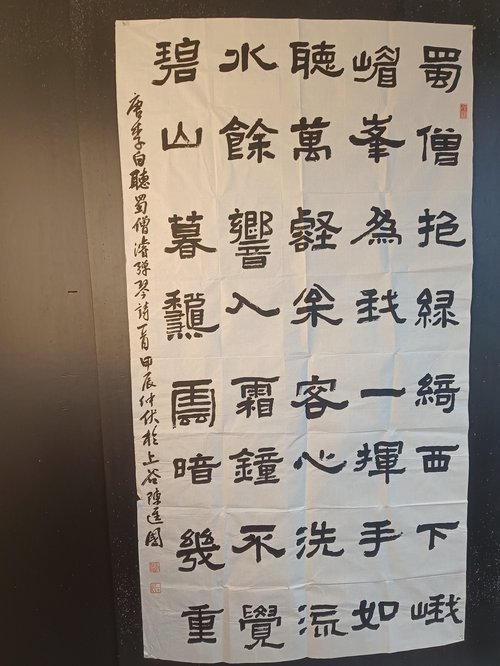 蜀僧抱緑綺西下峨
嵋峯為我一揮手如
聽萬壑枀客心洗流
水餘響入霜鐘不覺
碧山暮龝雲暗幾重
唐李白聽蜀僧濬彈琴詩一首甲辰仲伏於上谷陳國